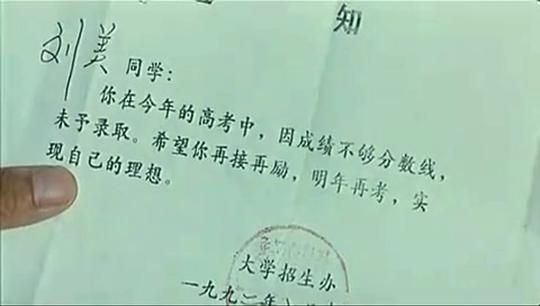 知
刘美 同学：
你在今年的高考中，因成绩不够分数线，
未予录取。希望你再接再励，明年再考，实
现自己的理想。
大学招生办
一九九二年